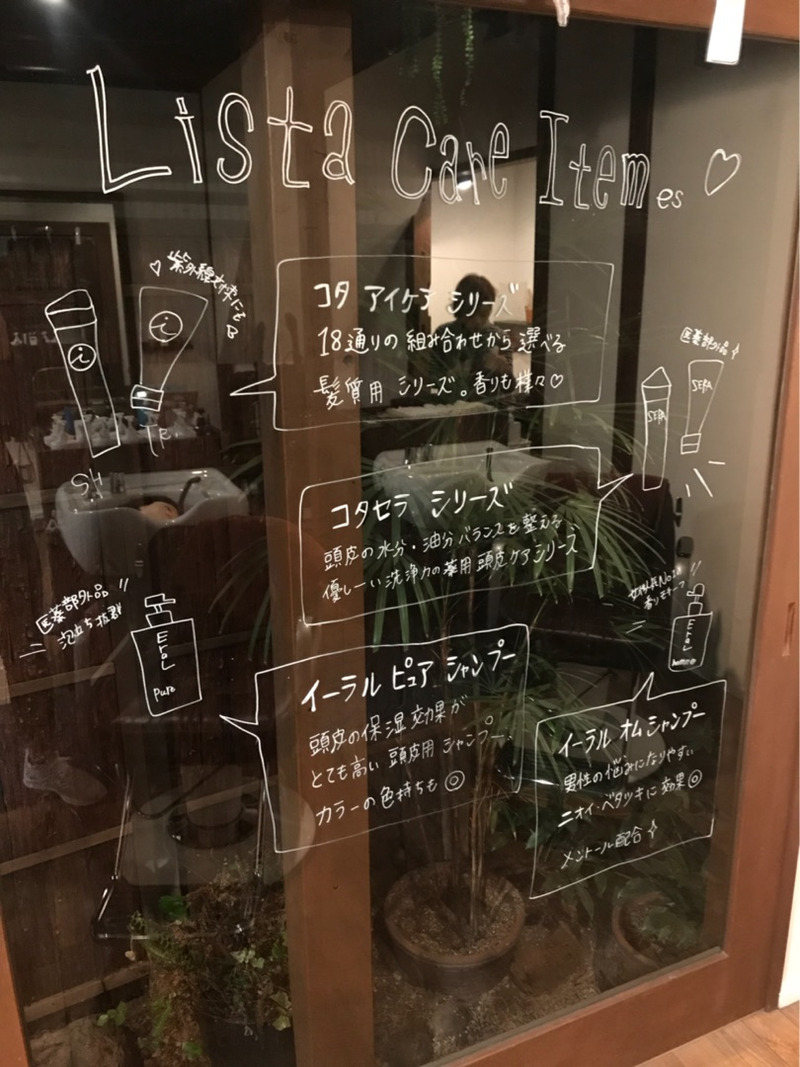 Lista Care Item es ♡
♡ 紫外線対策にも
i
i
SH
TR.
コタ アイケア シリーズ
18通りの組み合わせから選べる
髪質用 シリーズ。香りも様々♡
医薬部外品
SERA
SERA
コタセラ シリーズ
頭皮の水分・油分バランスを整える、
優しーい洗浄力の薬用 頭皮ケアシリーズ
医薬部外品
泡立ち抜群
Eral
Pure
イーラル ピュア シャンプー
頭皮の保湿効果が
とても高い 頭皮用 シャンプー。
カラーの色持ちも ◎
香りモチーフ
Eral
イーラル オム シャンプー
男性の悩みになりやすい
ニオイ・ベタツキに 効果◎
メントール配合